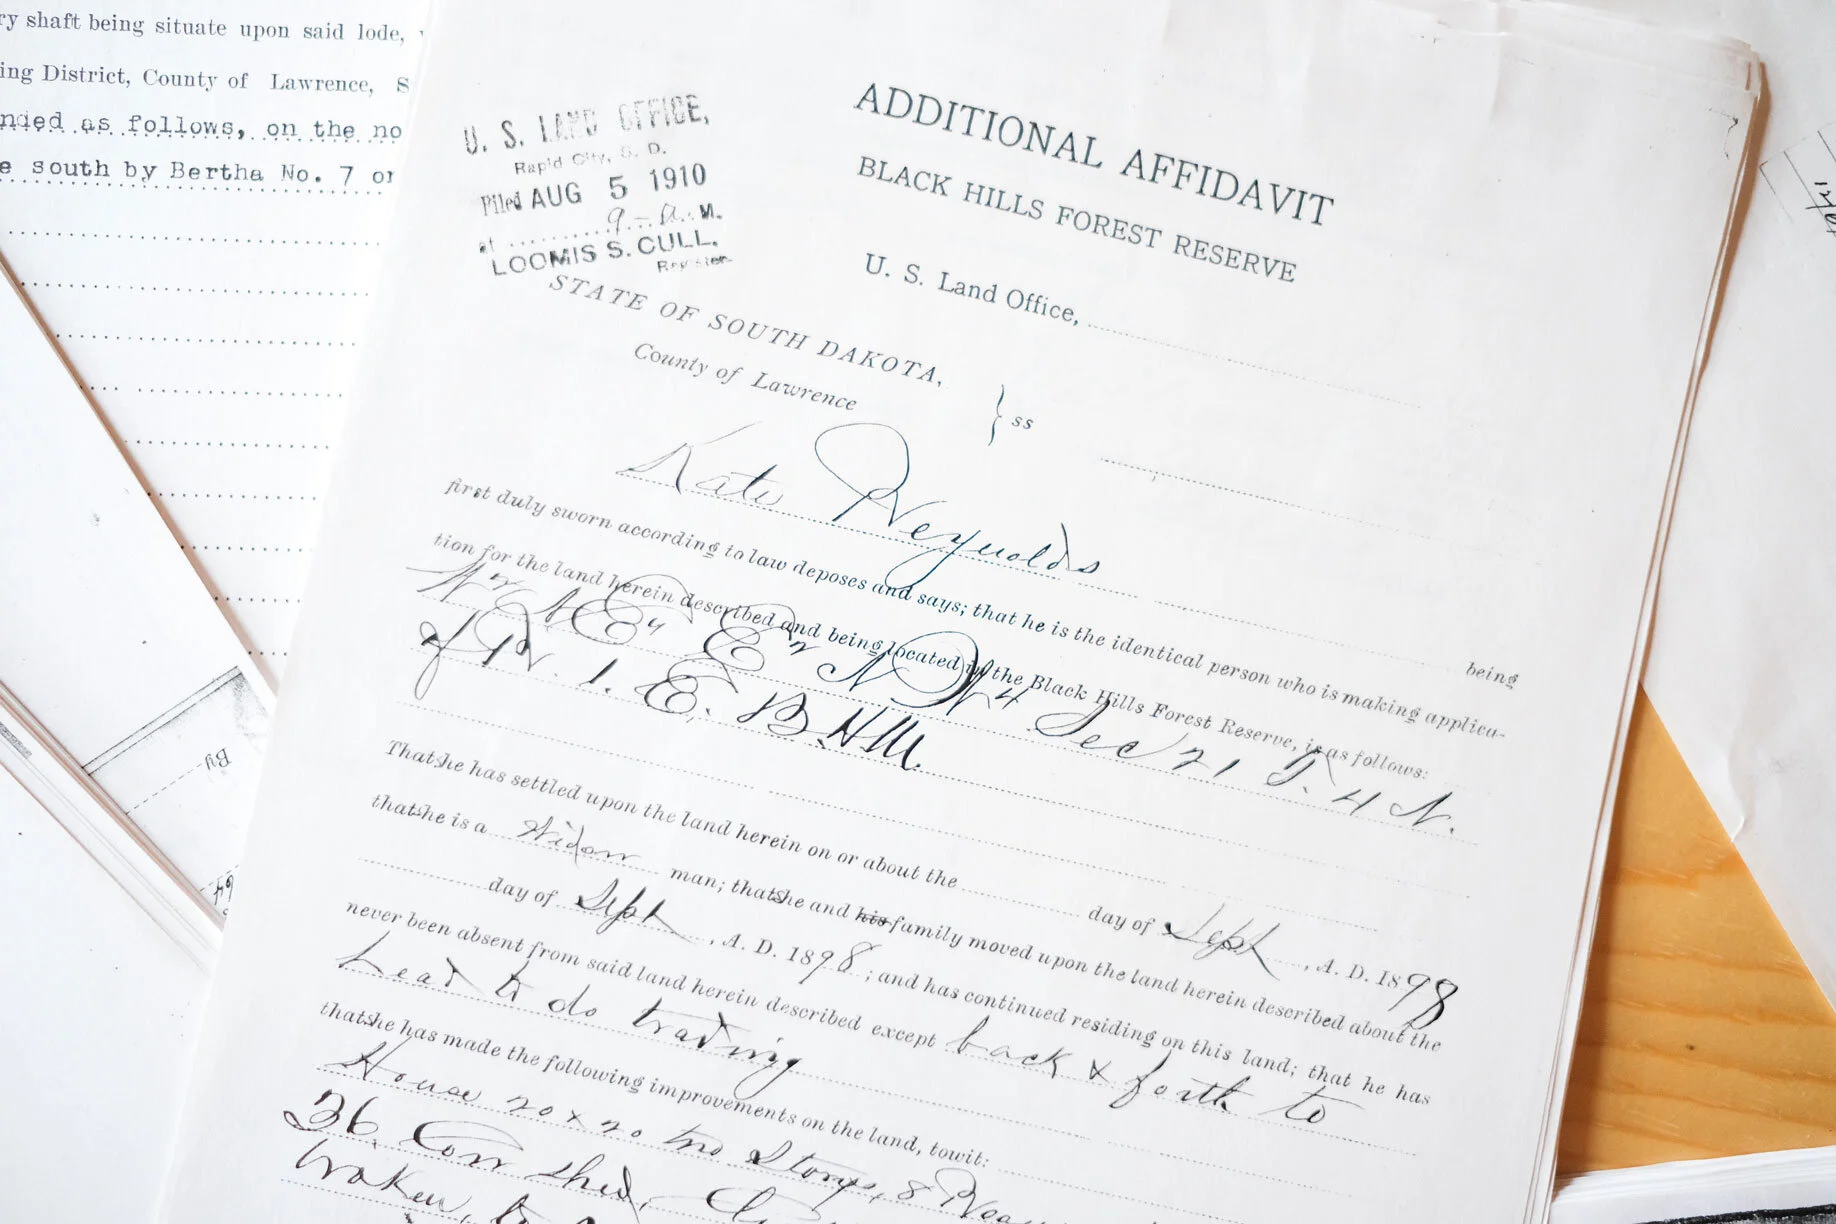 ry shaft being situate upon said lode,
ing District, County of Lawrence, S
nded as follows, on the no
e south by Bertha No. 7 or
U. S. LAND OFFICE,
Rapid City, S. D.
Filed AUG 5 1910
at 9 - A. M.
LOOMIS S. CULL.
Register.
ADDITIONAL AFFIDAVIT
BLACK HILLS FOREST RESERVE
U. S. Land Office,
STATE OF SOUTH DAKOTA,
County of Lawrence
} ss
Kate Reynolds
being
first duly sworn according to law deposes and says; that he is the identical person who is making applica-
tion for the land herein described and being located in the Black Hills Forest Reserve, is as follows:
E 2 N W 4 Sec 21 T. 4 N.
of R. 1. E. B.H.M.
That she has settled upon the land herein on or about the day of Sept, A. D. 1898
that she is a Widow man; that she and his family moved upon the land herein described about the
day of Sept, A. D. 1898; and has continued residing on this land; that he has
never been absent from said land herein described except back & forth to
Lead to do trading
that she has made the following improvements on the land, towit:
House 20 x 20 two Story, 8
26 Cow shed,
By